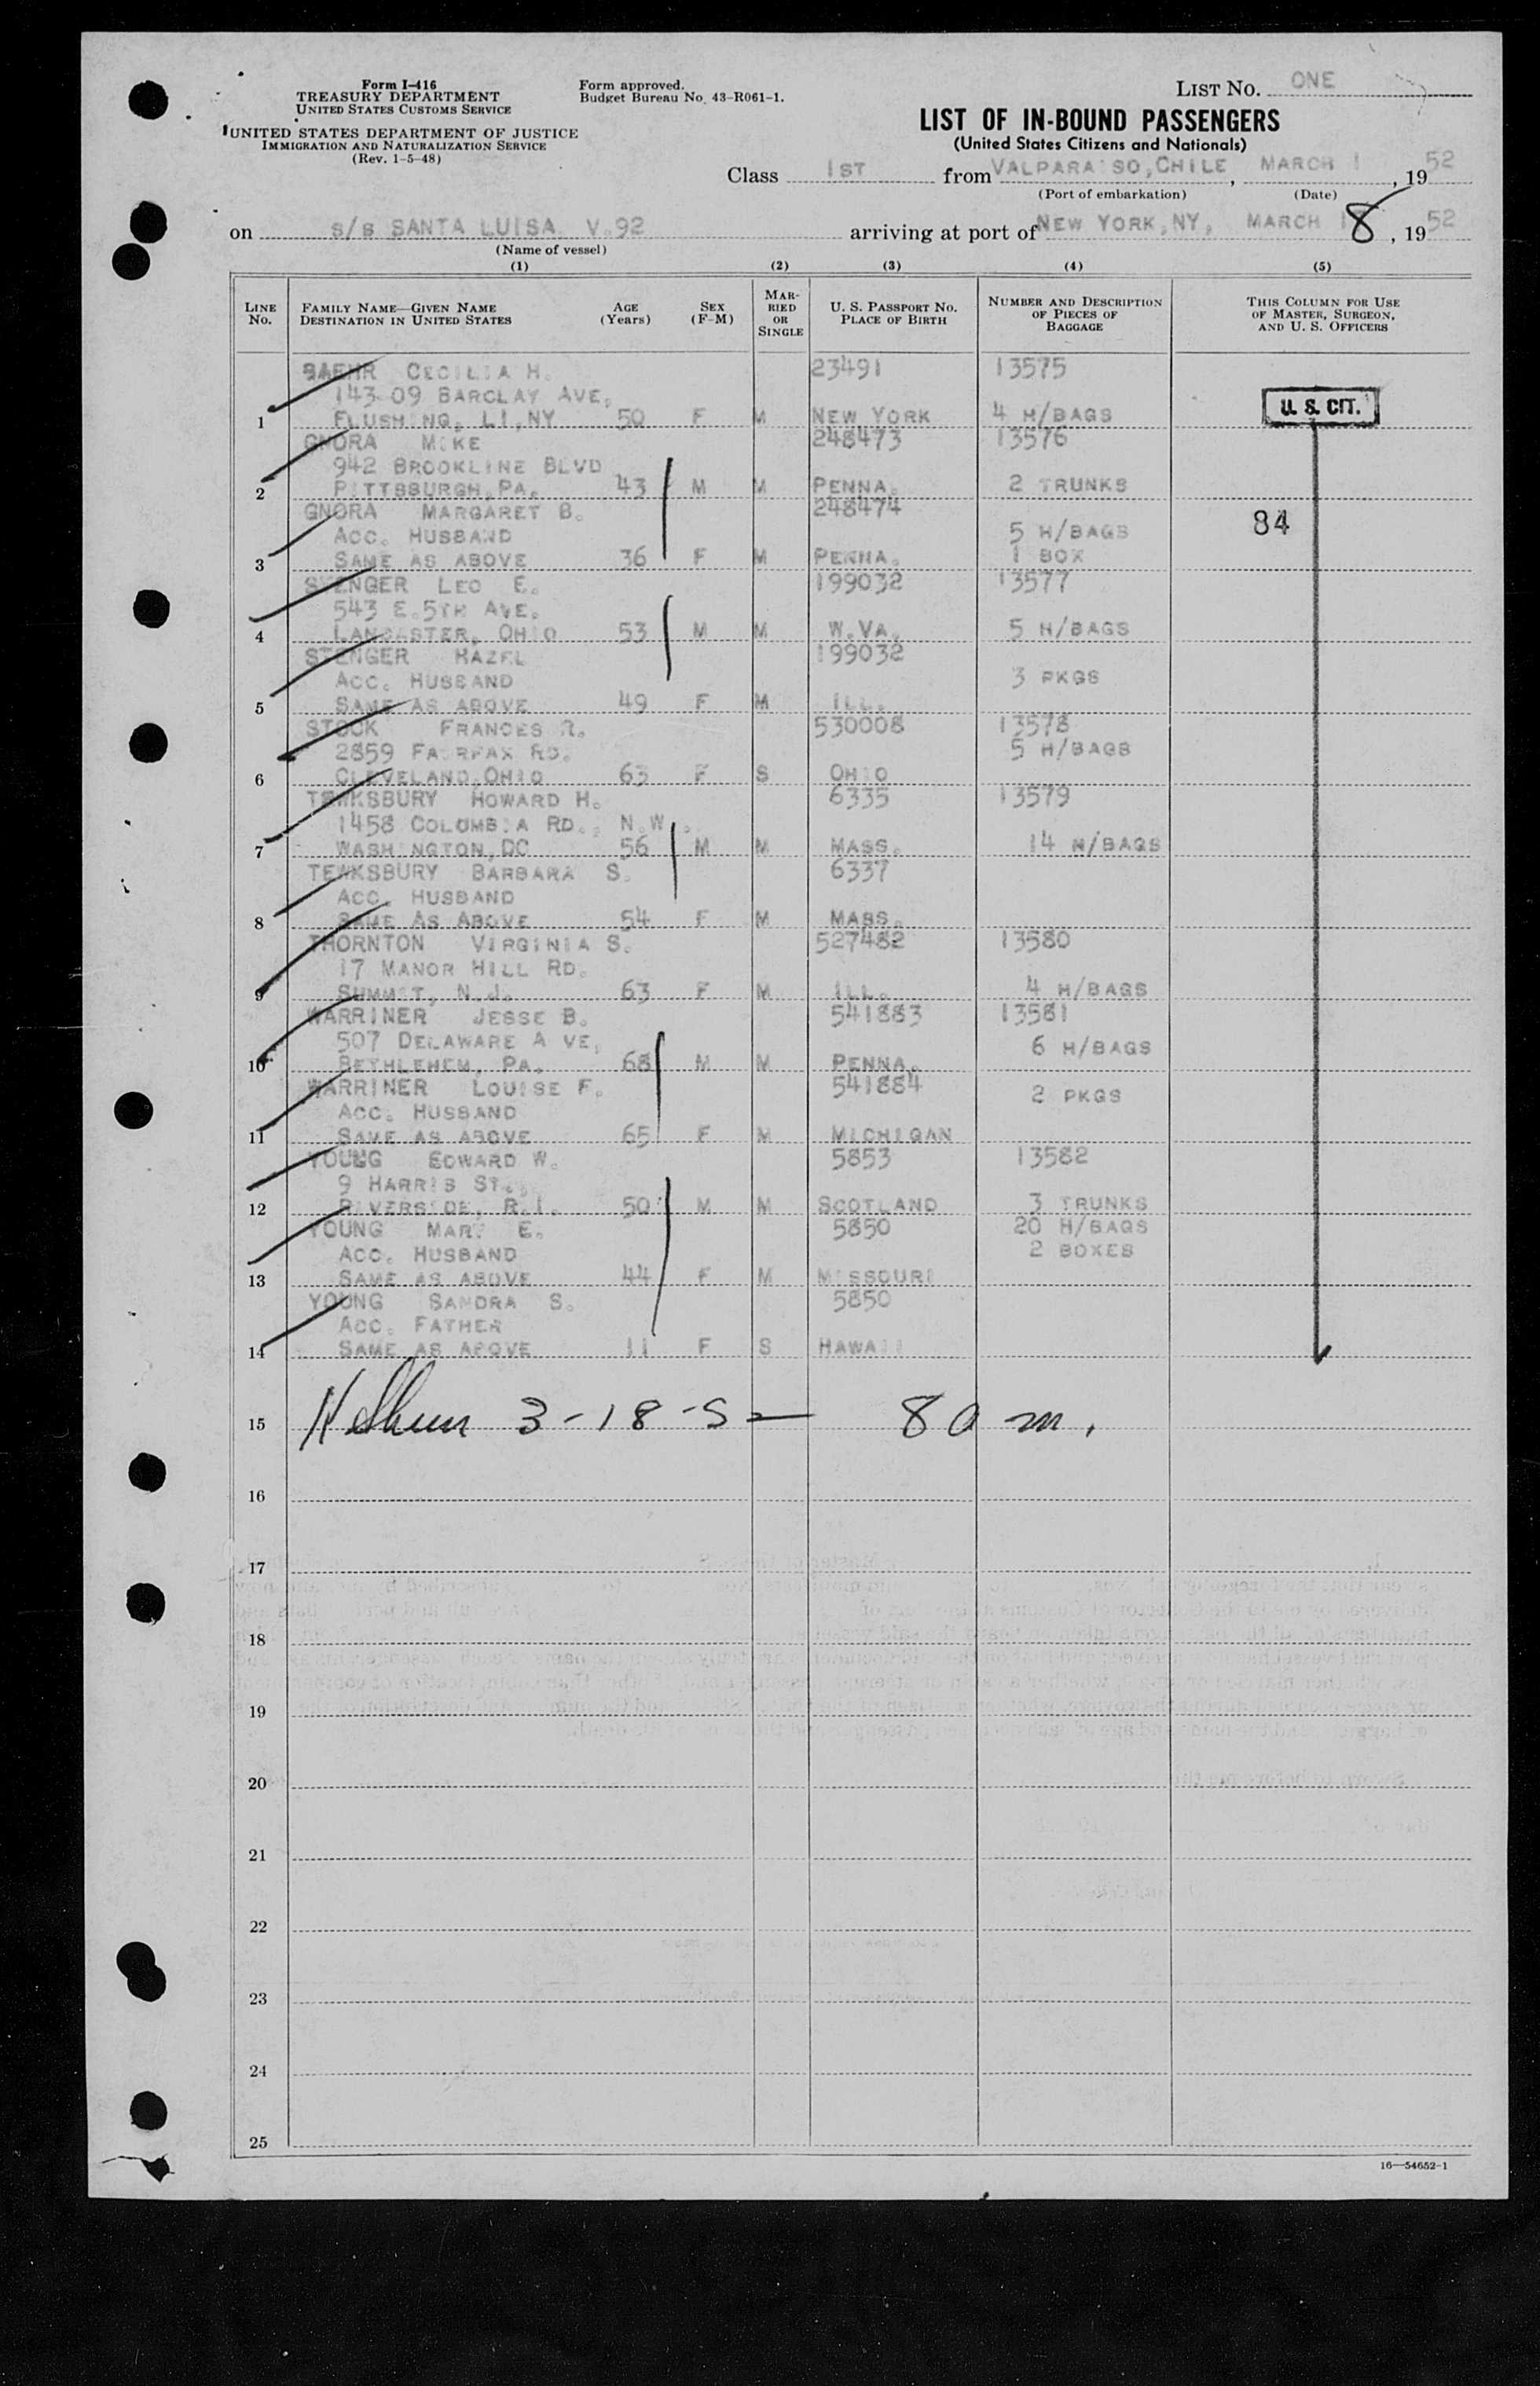 Form I-416
TREASURY DEPARTMENT
UNITED STATES CUSTOMS SERVICE
UNITED STATES DEPARTMENT OF JUSTICE
IMMIGRATION AND NATURALIZATION SERVICE
(Rev. 1-5-48)
Form approved.
Budget Bureau No. 43-R061-1.
LIST No. ONE
LIST OF IN-BOUND PASSENGERS
(United States Citizens and Nationals)
Class 1ST from VALPARAISO, CHILE, MARCH 1, 1952
(Port of embarkation) (Date)
on s/s SANTA LUISA V.92 arriving at port of NEW YORK, NY, MARCH 18, 1952
(Name of vessel)
(1) (2) (3) (4) (5)
LINE No. FAMILY NAME—GIVEN NAME DESTINATION IN UNITED STATES AGE (Years) SEX (F-M) MARRIED OR SINGLE U. S. PASSPORT No. PLACE OF BIRTH NUMBER AND DESCRIPTION OF PIECES OF BAGGAGE THIS COLUMN FOR USE OF MASTER, SURGEON, AND U. S. OFFICERS
BAEHR CECILIA H. 23491 13575
143-09 BARCLAY AVE. U. S. CIT.
1 FLUSHING, LI, NY 50 F M NEW YORK 4 H/BAGS
GNORA MIKE 248473 13576
942 BROOKLINE BLVD
2 PITTSBURGH, PA. 43 M M PENNA. 2 TRUNKS
GNORA MARGARET B. 248474
ACC. HUSBAND 5 H/BAGS 84
3 SAME AS ABOVE 36 F M PENNA. 1 BOX
STENGER LEO E. 199032 13577
543 E. 5TH AVE.
4 LANCASTER, OHIO 53 M M W.VA. 5 H/BAGS
STENGER HAZEL 199032
ACC. HUSBAND 3 PKGS
5 SAME AS ABOVE 49 F M ILL.
STOCK FRANCES R. 530008 13578
2859 FAIRFAX RD. 5 H/BAGS
6 CLEVELAND, OHIO 63 F S OHIO
TEWKSBURY HOWARD H. 6335 13579
1458 COLUMBIA RD., N.W.
7 WASHINGTON, DC 56 M M MASS. 14 H/BAGS
TEWKSBURY BARBARA S. 6337
ACC. HUSBAND
8 SAME AS ABOVE 54 F M MASS.
THORNTON VIRGINIA S. 527482 13580
17 MANOR HILL RD.
9 SUMMIT, N.J. 63 F M ILL. 4 H/BAGS
WARRINER JESSE B. 541883 13581
507 DELAWARE A VE, 6 H/BAGS
10 BETHLEHEM, PA. 68 M M PENNA.
WARRINER LOUISE F. 541884 2 PKGS
ACC. HUSBAND
11 SAME AS ABOVE 65 F M MICHIGAN
YOUNG EDWARD W. 5853 13582
9 HARRIS ST.,
12 RIVERSIDE, R.I. 50 M M SCOTLAND 3 TRUNKS
YOUNG MARY E. 5850 20 H/BAGS
ACC. HUSBAND 2 BOXES
13 SAME AS ABOVE 44 F M MISSOURI
YOUNG SANDRA S. 5850
ACC. FATHER
14 SAME AS ABOVE 11 F S HAWAII
15 3-18-52 8 a m.
16
17
18
19
20
21
22
23
24
25
16—54652-1